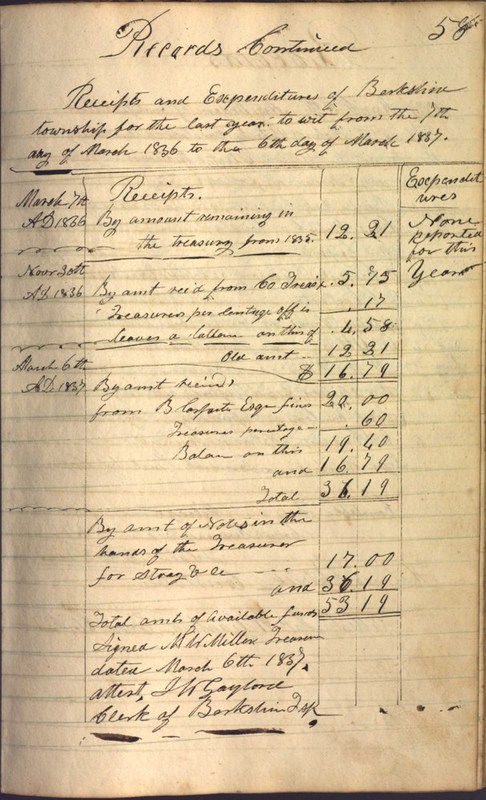 Records Continued
Receipts and Expenditures of Berkshire
township for the last year. to wit from the 7th
day of March 1836 to the 6th day of March 1837.
March 7th Receipts. Expendit
ures
A.D 1836 By amount remaining in
the treasury from 1835. 12.21 None
reported
for this
Year
Novr 30th
A.D 1836 By amt rec'd from Co Treas. 5.75
Treasurers per centage off is .17
leaves a balance on this of 4.58
Old amt 12 21
March 6th $ 16.79
A.D. 1837 By amt recived
from B Esqr fines 20.00
Treasurers percentage .60
Balan on this 19.40
and 16 79
Total 36.19
By amt of Notes in the
hands of the Treasurer
for Strays &c 17.00
and 36.19
Total amts of available funds 53 19
Signed N. W Miller Treasur
dated March 6th. 1837.
attest, J W Gaylord
Clerk of Berkshire Tsp